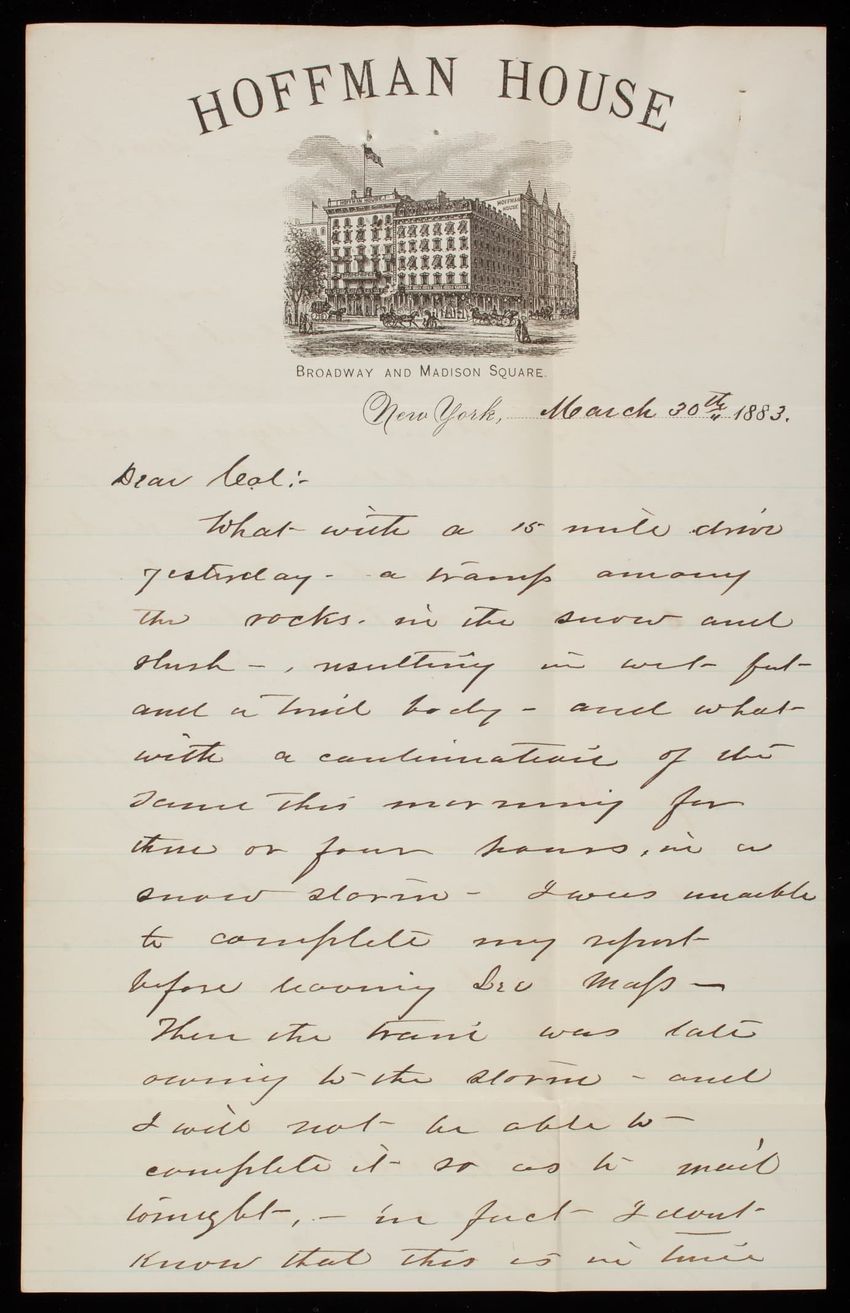 HOFFMAN HOUSE
HOFFMAN HOUSE
HOFFMAN HOUSE
BROADWAY AND MADISON SQUARE.
New York, March 30th 1883.
Dear Col:-
What with a 15 mile drive
yesterday - a tramp among
the rocks. in the snow and
slush -, resulting in wet feet
and a tired body - and what
with a continuation of the
same this morning for
three or four hours, in a
snow storm - I was unable
to complete my report
before leaving Mass -
Then the train was late
owing to the storm - and
I will not be able to
complete it so as to mail
tonight, - in fact I dont
know that this is in time